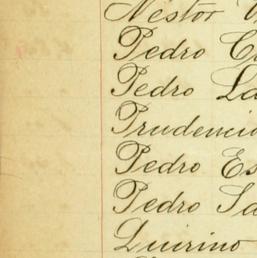 Néstor
Pedro
Pedro La
Prudencio
Pedro Es
Pedro Sa
Quirino